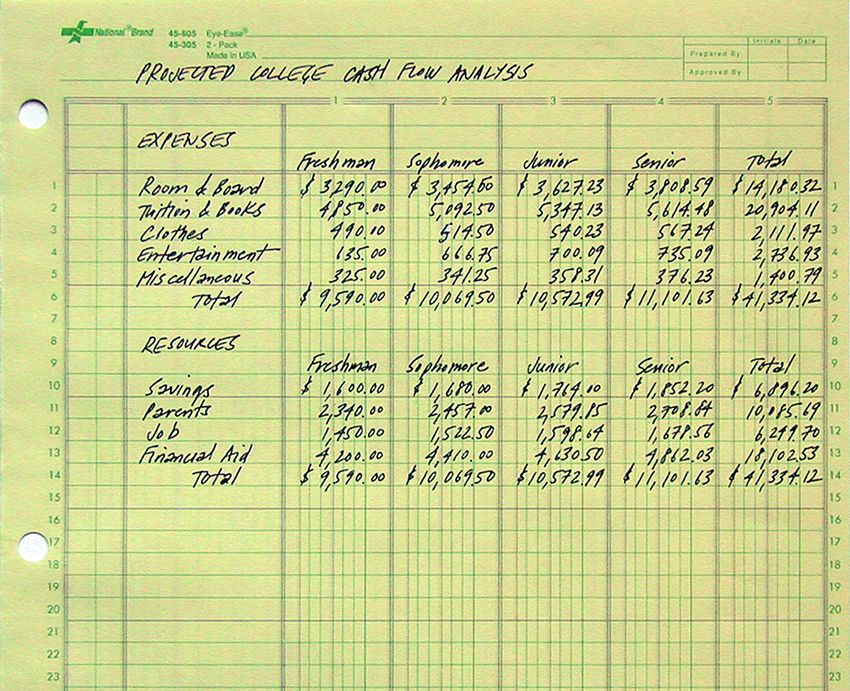 National® Brand 45-605 Eye-Ease®
45-305 2 - Pack
Made in USA
Initials Date
Prepared By
Approved By
PROJECTED COLLEGE CASH FLOW ANALYSIS
1 2 3 4 5
EXPENSES
Freshman Sophomore Junior Senior Total
1 Room & Board $ 3290.00 $ 3,454.50 $ 3,627.23 $ 3,808.59 $ 14,180.32 1
2 Tuition & Books 4,850.00 5,092.50 5,347.13 5,614.48 20,904.11 2
3 Clothes 490.00 514.50 540.23 567.24 2,111.97 3
4 Entertainment 635.00 666.75 700.09 735.09 2,736.93 4
5 Miscellaneous 325.00 341.25 358.31 376.23 1,400.79 5
6 Total $ 9,590.00 $ 10,069.50 $ 10,572.99 $ 11,101.63 $ 41,334.12 6
7 7
8 RESOURCES 8
9 Freshman Sophomore Junior Senior Total 9
10 Savings $ 1,600.00 $ 1,680.00 $ 1,764.00 $ 1,852.20 $ 6,896.20 10
11 Parents 2,340.00 2,457.00 2,579.85 2,708.84 10,085.69 11
12 Job 1,450.00 1,522.50 1,598.64 1,678.56 6,249.70 12
13 Financial Aid 4,200.00 4,410.00 4,630.50 4,862.03 18,102.53 13
14 Total $ 9,590.00 $ 10,069.50 $ 10,572.99 $ 11,101.63 $ 41,334.12 14
15 15
16 16
17 17
18 18
19 19
20 20
21 21
22 22
23 23